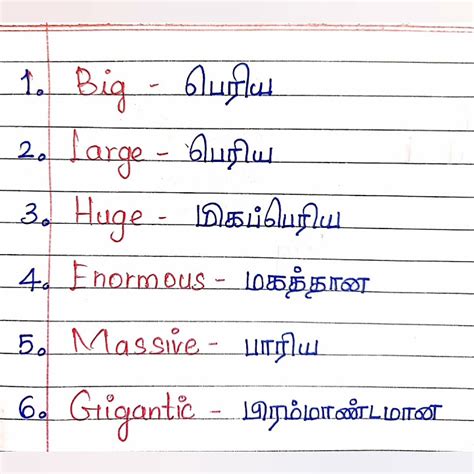 1. Big - பெரிய
2. Large - பெரிய
3. Huge - மிகப்பெரிய
4. Enormous - மகத்தான
5. Massive - பாரிய
6. Gigantic - பிரம்மாண்டமான